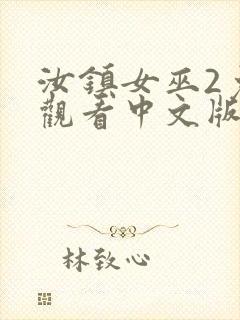 汝鎮女巫2
觀看中文版
林致心